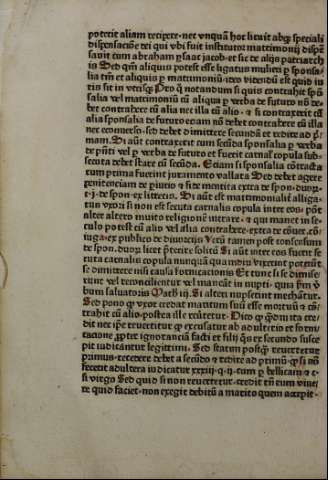 poterit aliam recipere. nec vnquã hoc licuit absqʒ speciali
dispensatiõe dei qui vbi fuit institutor matrimonij dispē
sauit cum abraham ysaac iacob. et sic de alijs patriarch
is Sed qm̄ aliquis potest esse ligatus mulieri ꝑ sponsa
lia tm̄ et aliquis ꝑ matrimoniũ. ideo videndũ est quid iu
ris sit in vtrisqʒ Pro quo notandum si quis contrahit spõ
salia vel matrimoniũ cũ aliqua ꝑ verba de futuro nõ de-
bet contrahere cũ alia nec illa cũ alio. et si contraxerit cũ
alia sponsalia de futuro etiam nõ debet contrahere cũ illa
nec econuerso. sed debet dimittere secundã et redire ad pri
mam. Si aũt contraxerit cum secũda sponsalia ꝑ verba
de pñti vel ꝑ verba de futuro et fuerit carnal copula sub-
secuta debet stare cũ secũda. Etiam si sponsalia cõtracta
cum prima fuerint iuramento vallata Sed debet agere
penitenciam de periurio et fide mentita extra de spon. duor.
Si aũt est matrimonialit̃ alliga-
tus vxori si non est secuta carnalis copula inter eos. põt
alter altero inuito religionē intrare. et qui manet in se-
culo potest cũ alio vel alia contrahere. extra de cõuer. cõ-
iuga. ex publico de diuorcijs Verũ tamen post consensum
Si aũt inter eos fuerit se
cuta carnalis copula nunquã quamdiu vixerint poterũt
se dimittere nisi causa fornicationis Et tunc si se dimise-
runt vel reconcilientur vel maneãt in nupti. quia
bum saluatoris Math Si alteri nupserint mechãtur.
Sed pono ꝙ vxor credat maritum suũ esse mortuũ et cõ-
trahit cũ alio. postea ille reuertetur. Dico ꝙ
dit nec ipse reuertitur ꝙ excusatur ab adulterio et forni-
catione propter ignorantiã facti et filij quos ex secundo susce
pit iudicantur legittimi. Sed statim postqʒ reuertetur
primus. recedere debet a secũdo et redire ad primũ. ꝙ si nõ
fecerit adultera iudicatur xxxiiij. q. ij. cum ꝑ bellicam et c.
si virgo Sed quid si non reuertetur. credit tñ eum viue-
re quid faciet. non exeget debitũ a marito quem accepit.